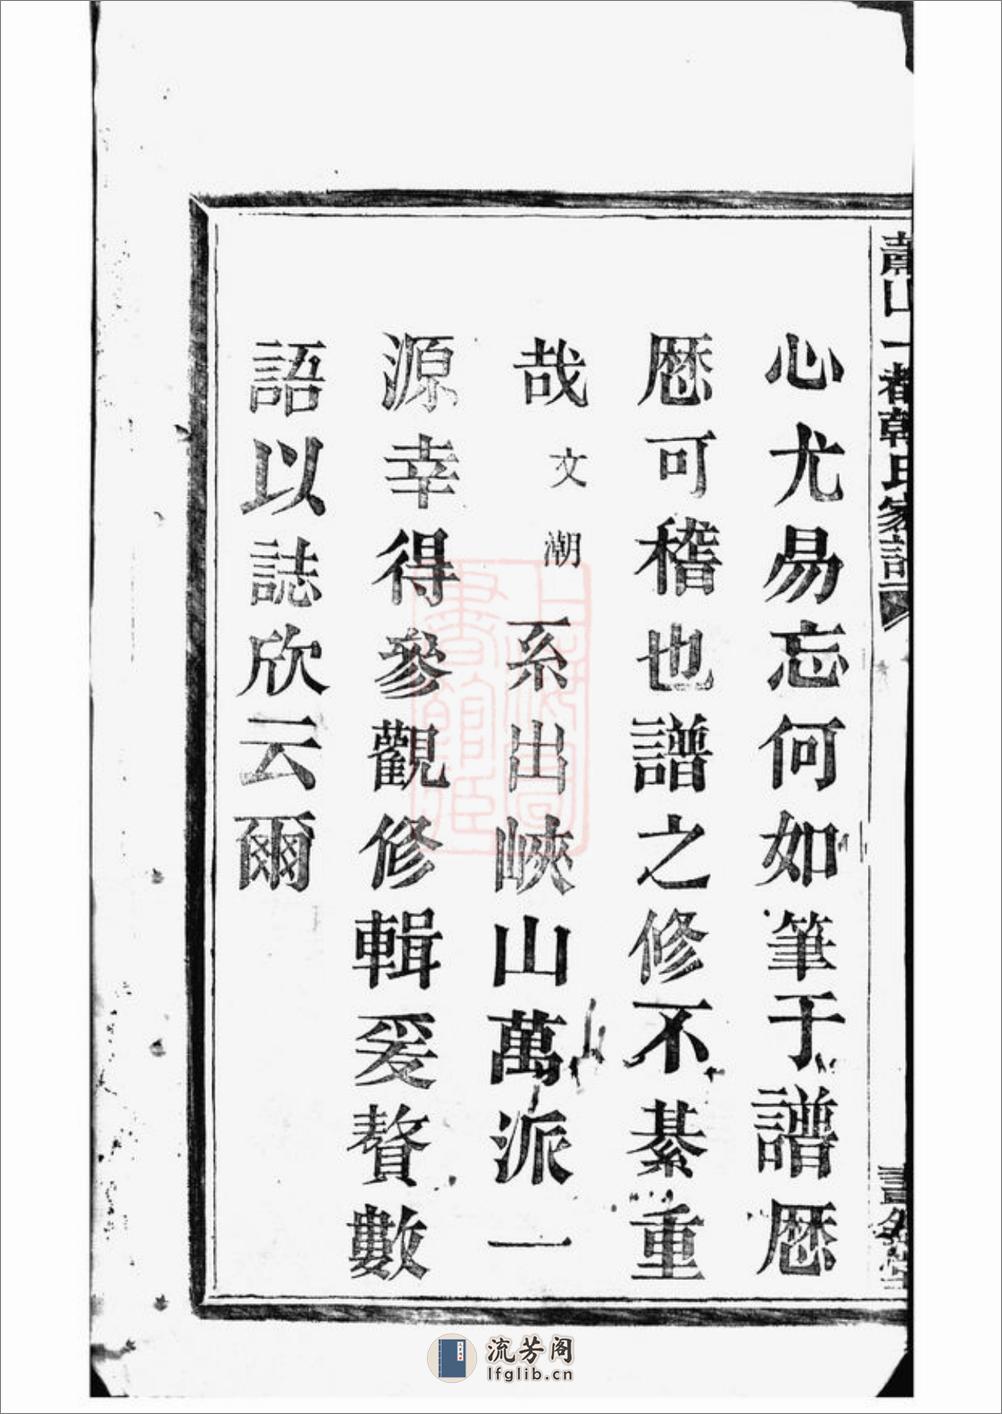 蕭山一都韓氏家譜
心尤易忘何如筆于譜厯
厯可稽也譜之修不綦重
哉文潮系出峽山萬派一
源幸得參觀修輯爰贅數
語以誌欣云爾
上海圖書館藏
流芳阁
lfglib.cn